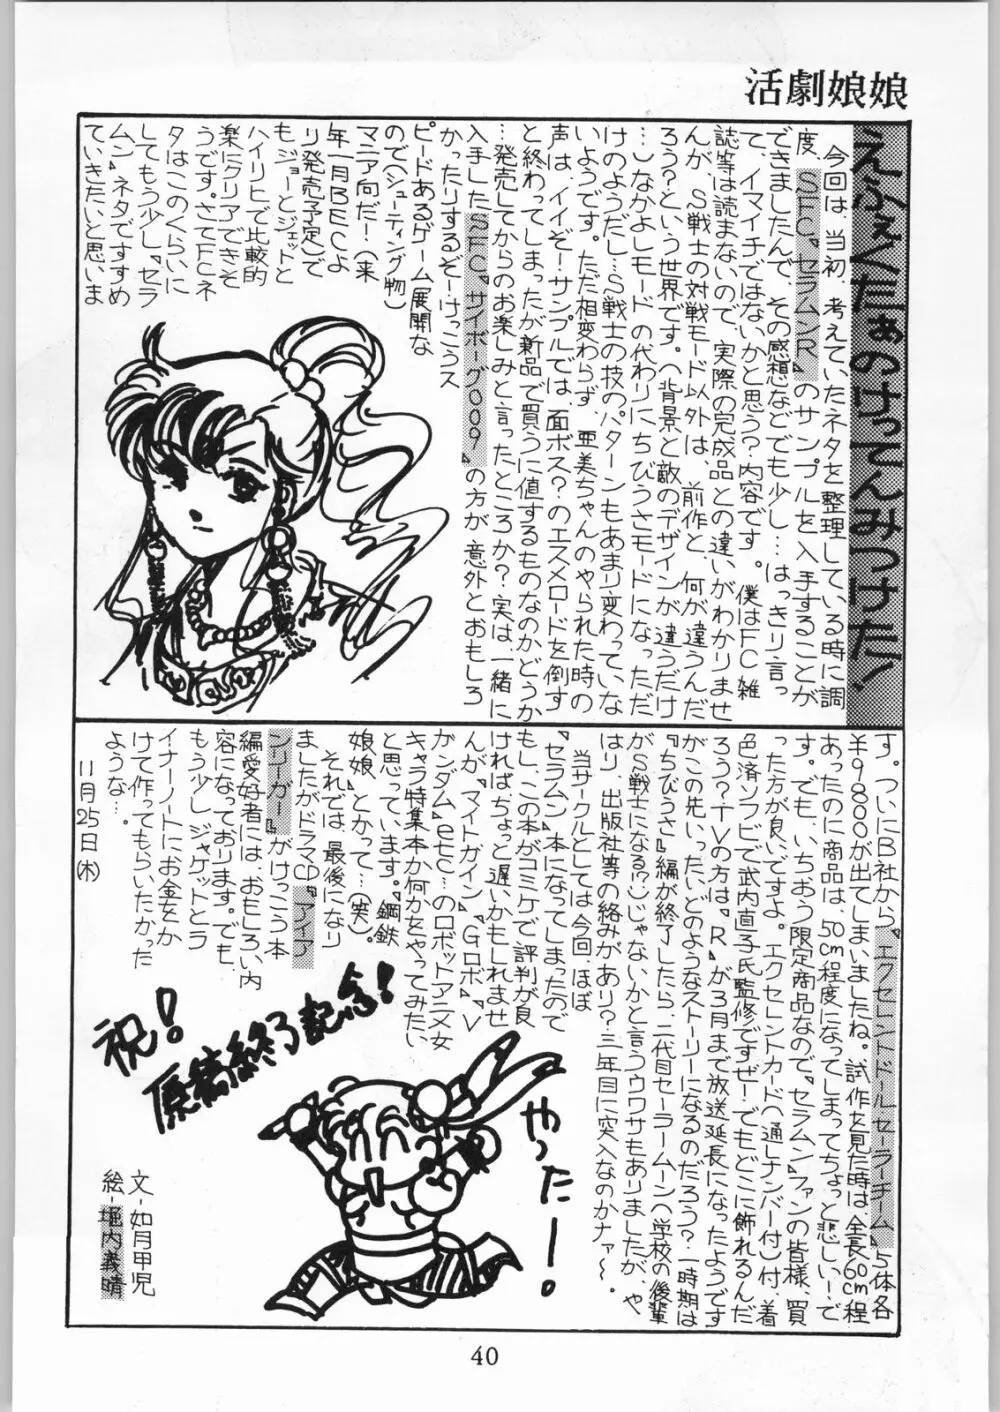 活劇娘娘
えふぇくたぁのけってんみつけた!
今回は当初、考えていたネタを整理している時に調
度、SFC『セラムンR』のサンプルを入手することが
できましたんで、その感想などでも少し…はっきり言っ
て、イマイチではないかと思う?内容です。僕はFC雑
誌等は読まないので、実際の完成品との違いがわかりませ
んが、S戦士の対戦モード以外は、前作と、何が違うんだ
ろう?という世界です。(背景と敵のデザインが違うだけ
…)なかよしモードの代わりにちびうさモードになっただ
けのようだし…S戦士の技のパターンもあまり変わっていな
いようです。ただ相変わらず、亜美ちゃんのやられた時の
声は、イイぞーサンプルでは、面ボス??のエスメロードを倒す
と終わってしまったが新品で買うに値するものなのかどうか
…発売してからのお楽しみと言ったところか?実は、一緒に
入手したSFC『サイボーグ009』の方が、意外とおもしろ
かったりするぞーけっこうス
ピードあるゲーム(展開な
ので(シューティング物)
マニア向だー!(来
年一月BECよ
り発売予定)で
も、ジョーとジェットと
ハイリヒで比較的
楽にクリアできそ
うです。さてFCネ
タはこのくらいに
してもう少し『セラ
ムン』ネタですすめ
ていきたいと思いま
す。ついにB社から『エクセレントドールセーラーチーム』5体各
¥9800が出てしまいましたね。試作を見た時は、全長60cm程
あったのに商品は、50cm程度になってしまってちょっと悲しいーで
す。でも、いちおう限定商品なので『セラムン』ファンの皆様、買
った方が良いですよ。エクセレントカード(通しナンバー付)付、着
色済ソフビで武内直子氏監修ですぜーでもどこに飾れるんだ
ろう?TVの方は『R』が3月まで放送延長になったようです
がこの先いったいどのようなストーリーになるのだろう?一時期は
『ちびうさ』編が終了したら、二代目セーラームーン(学校の後輩
がS戦士になる!?)じゃないかと言うウワサもありましたが、や
はり、出版社等の絡みがあり?三年目に突入なのかナァ〜。
当サークルとしては今回ほぼ
『セラムン』本になってしまったので
もし、この本がコミケで評判が良
ければ、ちょっと遅いかもしれませ
んが、『マイトガイン』『Gロボ』『V
ガンダム』etc…のロボットアニメ女
キャラ特集本か何かをやってみたい
と思っています。『鋼鉄
娘娘』とかって…(笑)。
それでは、最後になり
ましたがドラマCD『アイア
ンリーガー』がけっこう本
編愛好者には、おもしろい内
容になっております。でも、
もう少しジャケットとラ
イナーノートにお金をか
けて作ってもらいたかった
ような…。
11月25日(木)
祝!
原稿終了記念!
やったー!
文-如月甲児
絵-堀内義晴
40